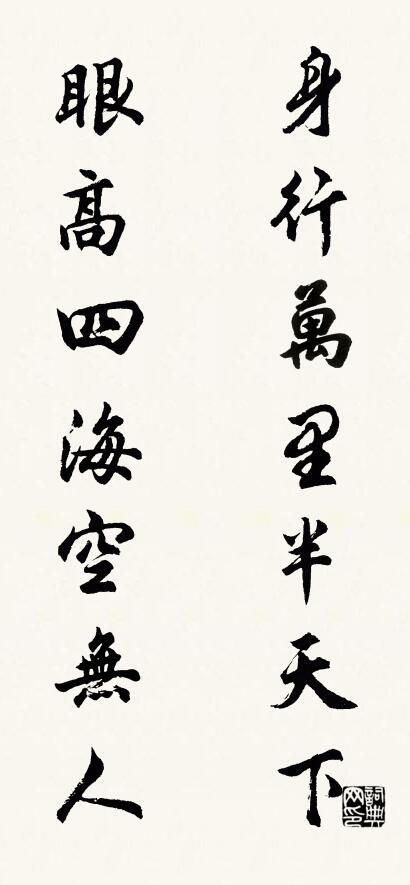 身行萬里半天下
眼高四海空無人
詞典網印